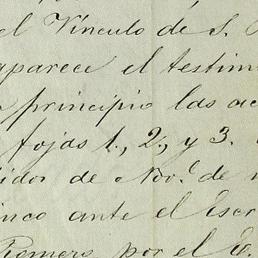 el Vínculo de S.
aparece el testim
principio las ac
fojas 1., 2., y 3.
idor de Nov.e de
inco ante el Escr
Romero, por el E.